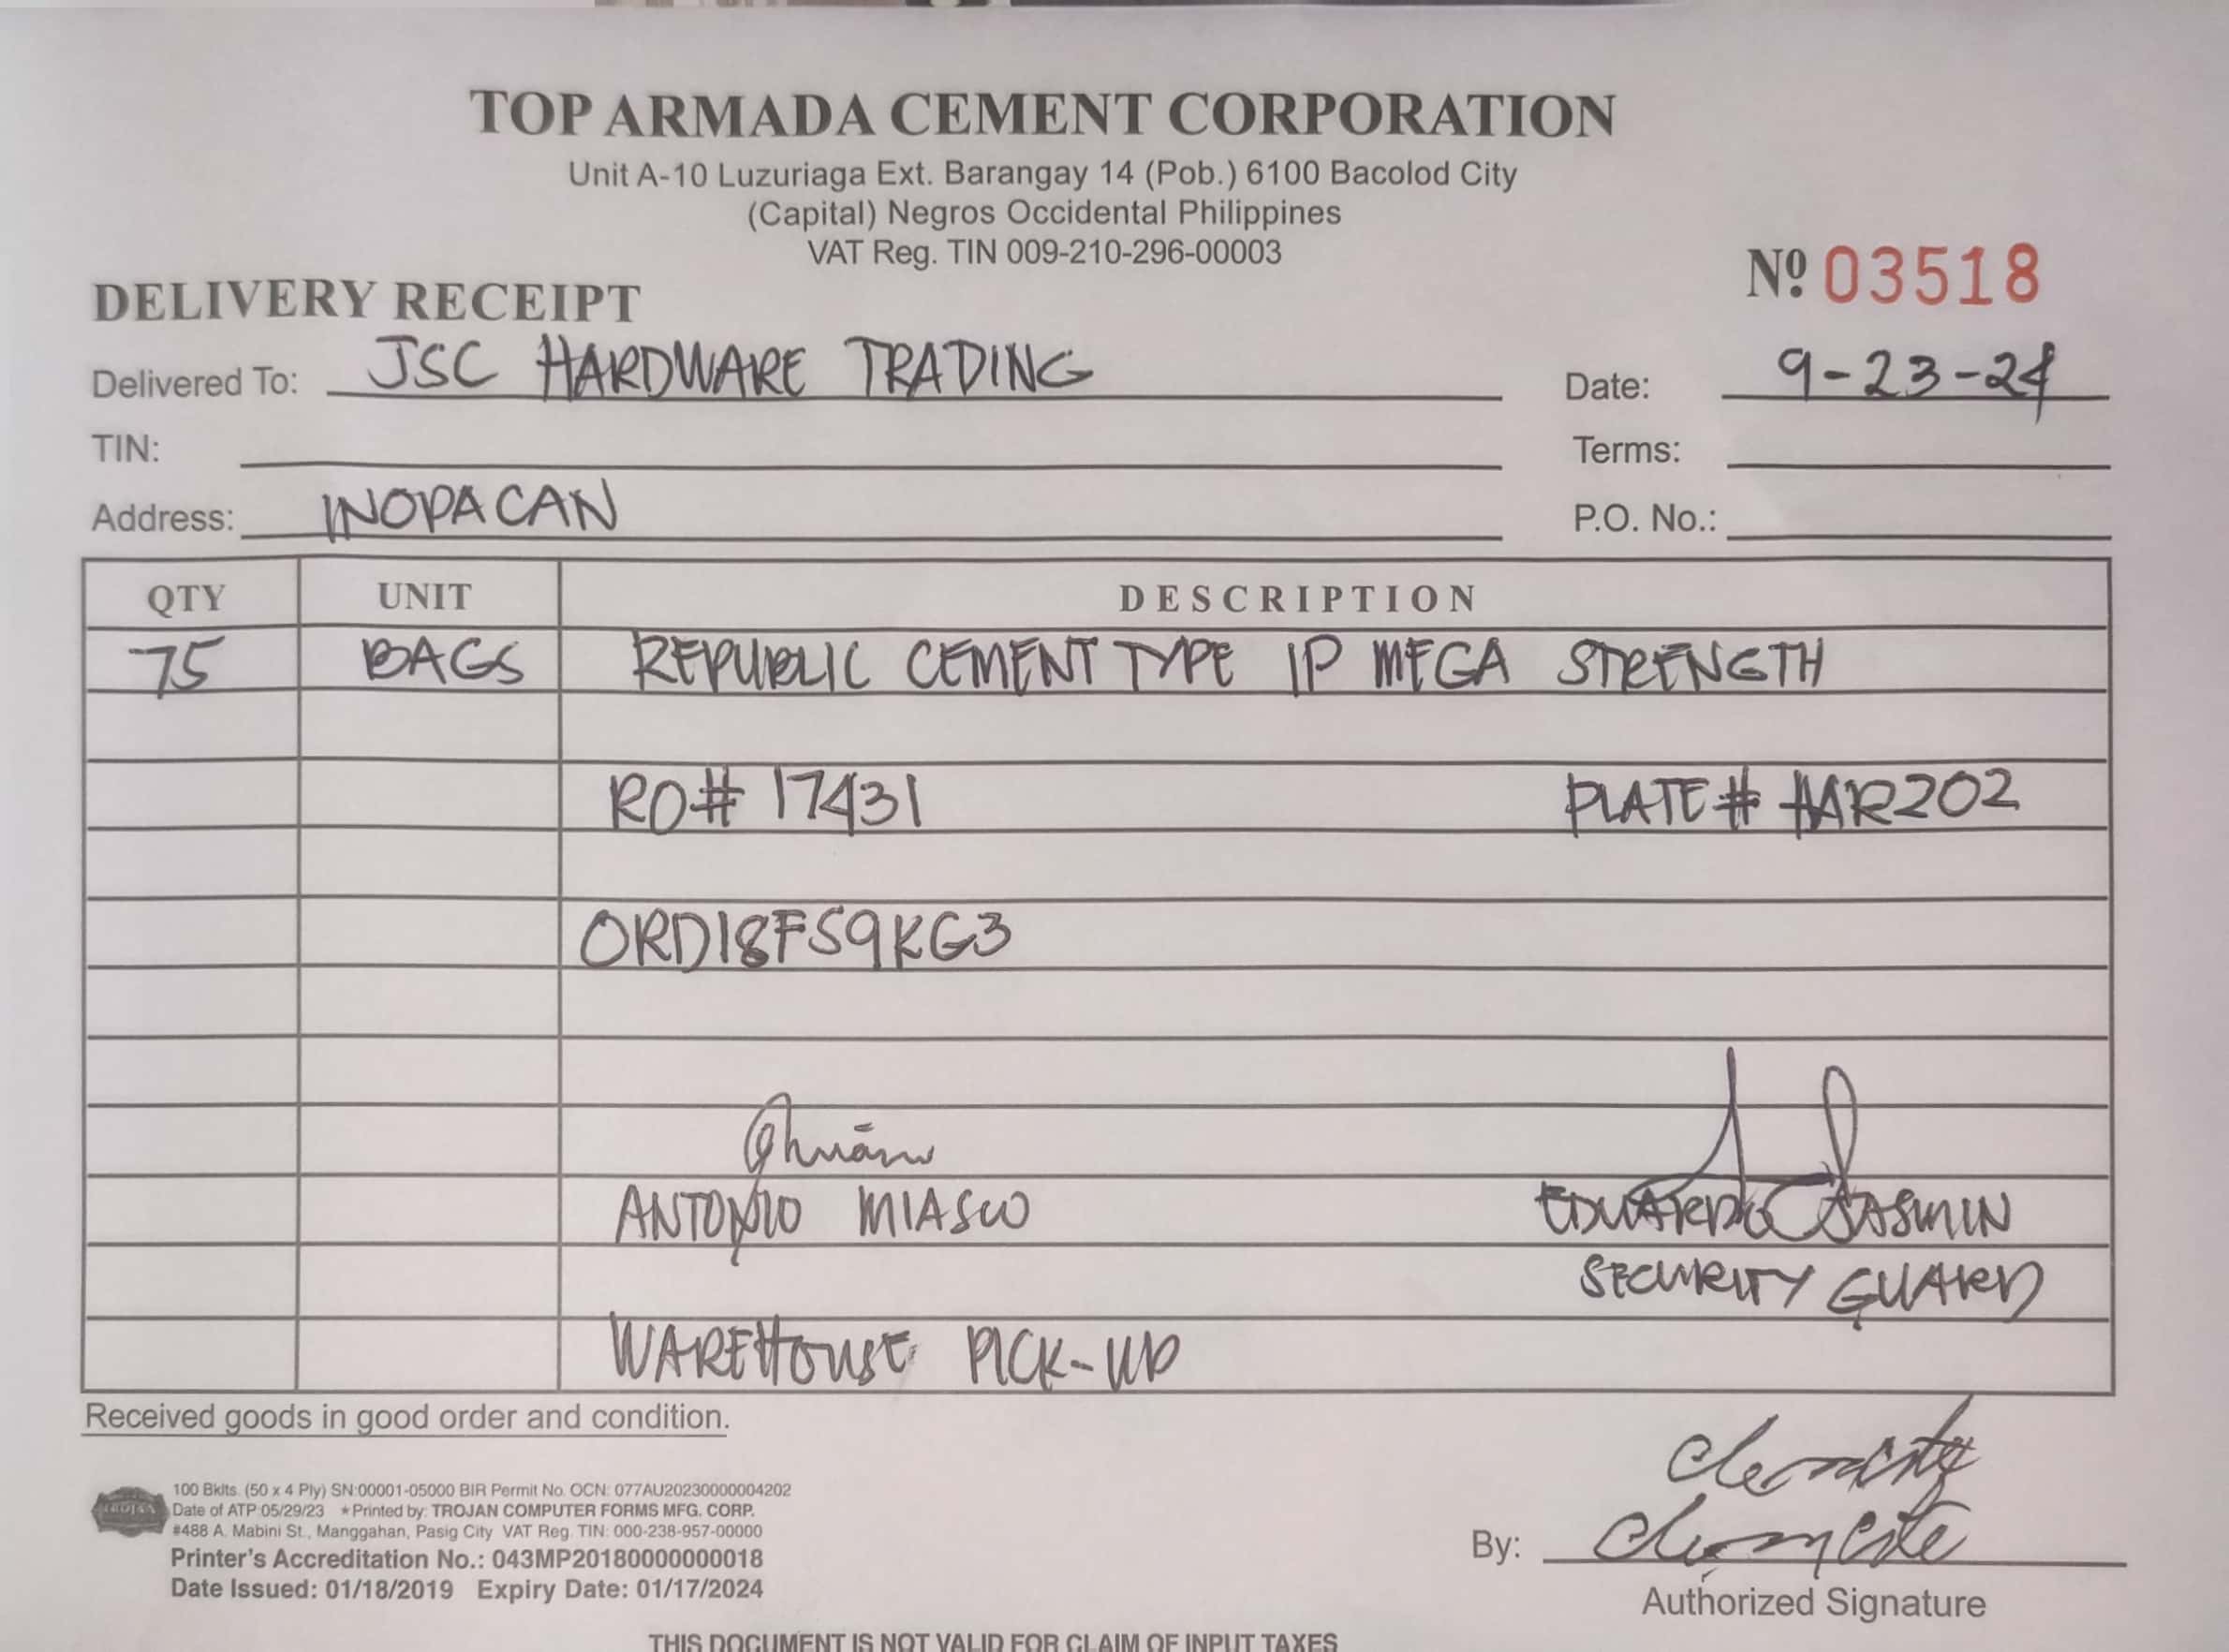 TOP ARMADA CEMENT CORPORATION
Unit A-10 Luzuriaga Ext. Barangay 14 (Pob.) 6100 Bacolod City
(Capital) Negros Occidental Philippines
VAT Reg. TIN 009-210-296-00003
Nº 03518
DELIVERY RECEIPT
Delivered To: JSC HARDWARE TRADING Date: 9-23-24
TIN: Terms:
Address: INOPACAN P.O. No.:
QTY UNIT DESCRIPTION
75 BAGS REPUBLIC CEMENT TYPE IP MEGA STRENGTH
RO# 17431 PLATE# HAR202
ORD18FS9KG3
ANTONIO MIASCO EDUARDO JASMIN
SECURITY GUARD
WAREHOUSE PICK-UP
Received goods in good order and condition.
100 Bklts. (50 x 4 Ply) SN:00001-05000 BIR Permit No. OCN: 077AU20230000004202
Date of ATP:05/29/23 ★Printed by: TROJAN COMPUTER FORMS MFG. CORP.
#488 A. Mabini St., Manggahan, Pasig City VAT Reg. TIN: 000-238-957-00000
Printer's Accreditation No.: 043MP20180000000018
Date Issued: 01/18/2019 Expiry Date: 01/17/2024
By:
Authorized Signature
THIS DOCUMENT IS NOT VALID FOR CLAIM OF INPUT TAXES